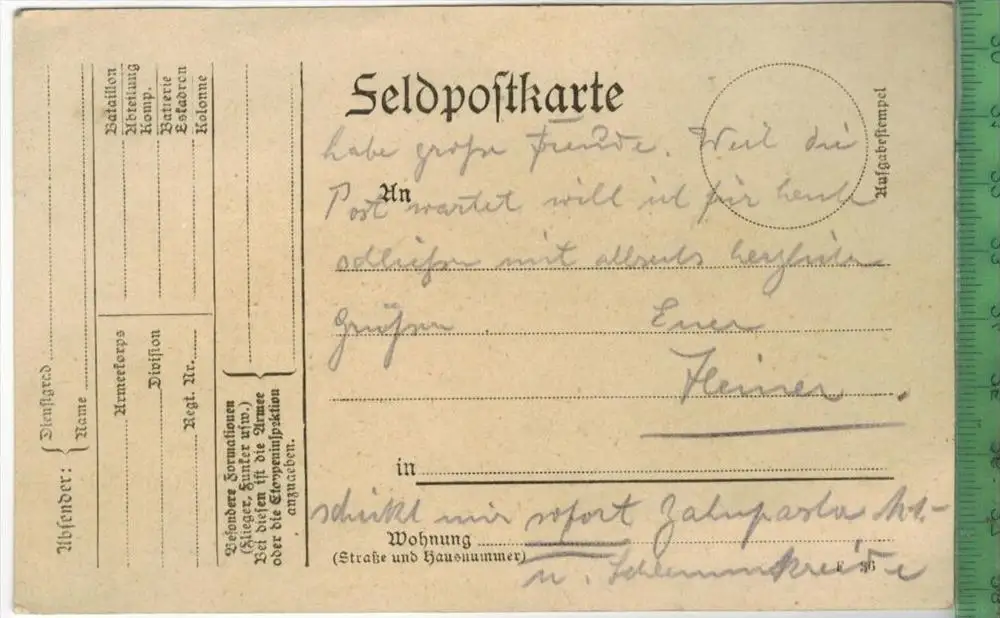 Feldpostkarte
habe große Freude. Weil die
An
Post wartet will ich für heute
schließen mit allseits herzlichen
Grüßen. Euer
Heiner.
in
schickt mir sofort Zahnpasta
Wohnung
(Straße und Hausnummer)
u. Schlemmkreide
Ausgabestempel
Absender:
Dienstgrad
Name
Armeekorps
Division
Regt. Nr.
Bataillon
Abteilung
Komp.
Batterie
Eskadron
Kolonne
Besondere Formationen
(Flieger, Funker usw.)
Bei diesen ist die Armee
oder die Etappeninspektion
anzugeben.